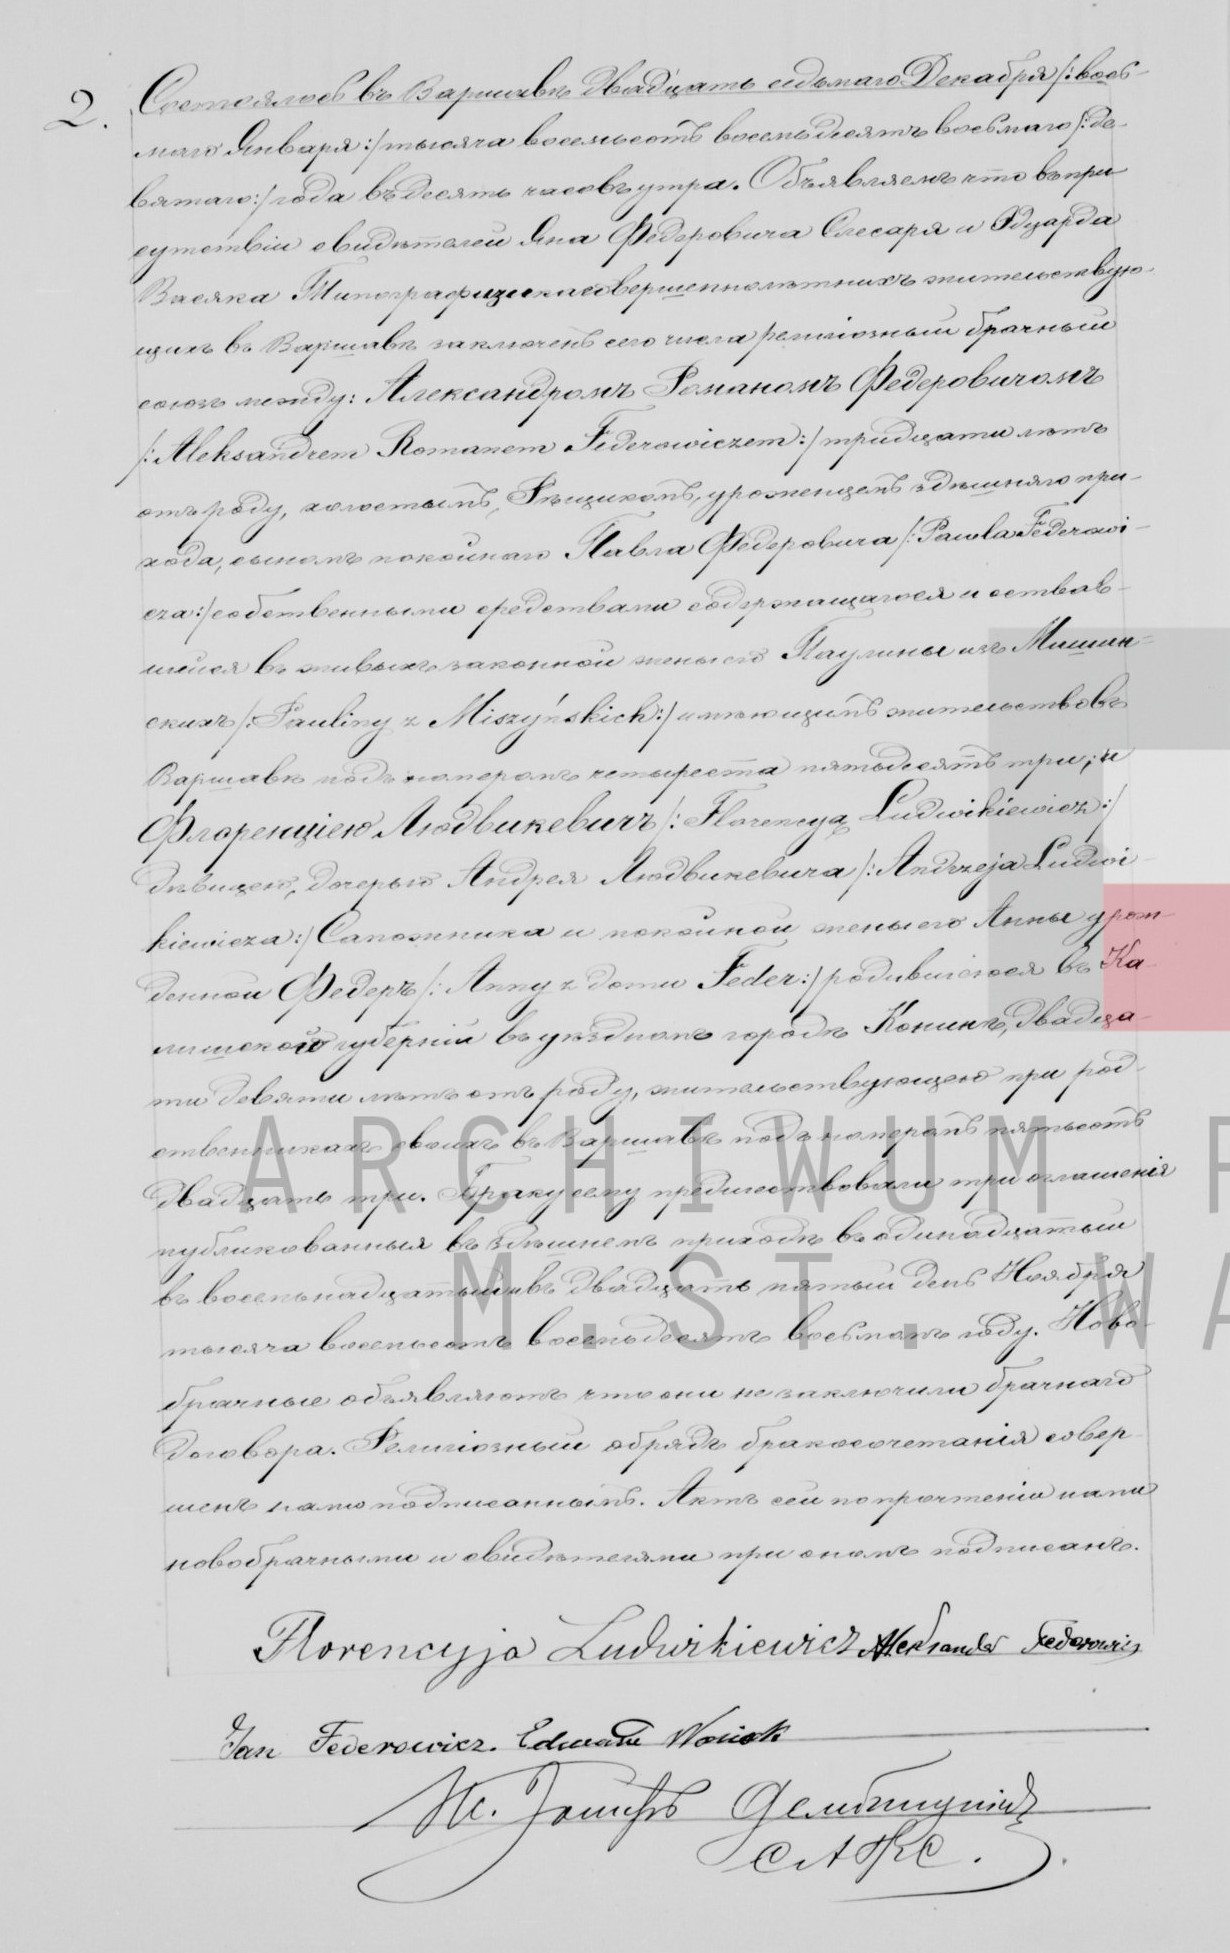 2. Состоялось въ Варшавѣ двадцать седьмаго Декабря /: вось-
маго Января :/ тысяча восемьсотъ восемьдесятъ восьмаго /: де-
вятаго :/ года въ десять часовъ утра. Объявляемъ что въ при
сутствіи свидѣтелей Яна Федеровича Слесаря и Эдуарда
Васяка Типографщика совершеннолѣтнихъ жительствую-
щихъ въ Варшавѣ заключенъ сего числа религіозный брачный
союзъ между: Александромъ Романомъ Федеровичомъ
/: Aleksandrem Romanem Federowiczem :/ тридцати лѣтъ
отъ роду, холостымъ, Рѣщикомъ, уроженцемъ здѣшняго при-
хода, сыномъ покойнаго Павла Федеровича /: Pawła Federowi-
cza :/ собственными средствами содержащагося и оставв-
шейся въ живыхъ законной жены его Паулины изъ Мишин-
скихъ /: Pauliny z Miszyńskich :/ имѣющимъ жительство въ
Варшавѣ подъ номеромъ четыреста пятьдесятъ три; и
Флоренціею Людвикевичъ /: Florencyą Ludwikiewicz :/
дѣвицею, дочерью Андрея Людвикевича /: Andrzeja Ludwi-
kiewicza :/ Сапожника и покойной жены его Анны урож-
денной Федеръ /: Anny z domu Feder :/ родившеюся въ Ка-
лишской губерніи въ уѣздномъ городѣ Конинѣ, двадца-
ти девяти лѣтъ отъ роду, жительствующею при род-
ственникахъ своихъ въ Варшавѣ подъ номеромъ пятьсотъ
двадцать три. Браку сему предшествовали три оглашенія
публикованныя въ здѣшнемъ приходѣ въ одинадцатый
въ восемьнадцатый и въ двадцать пятый день Ноября
тысяча восемьсотъ восемьдесятъ восьмомъ году. Ново-
брачные объявляютъ что они не заключили брачнаго
договора. Религіозный обрядъ бракосочетанія совер-
шенъ нами подписаннымъ. Актъ сей по прочтеніи нами
новобрачными и свидѣтелями при ономъ подписанъ.
Florencyja Ludwikiewicz Aleksander Federowicz
Jan Federowicz. Edward Wasiak
ARCHIWUM P
M.ST. WA